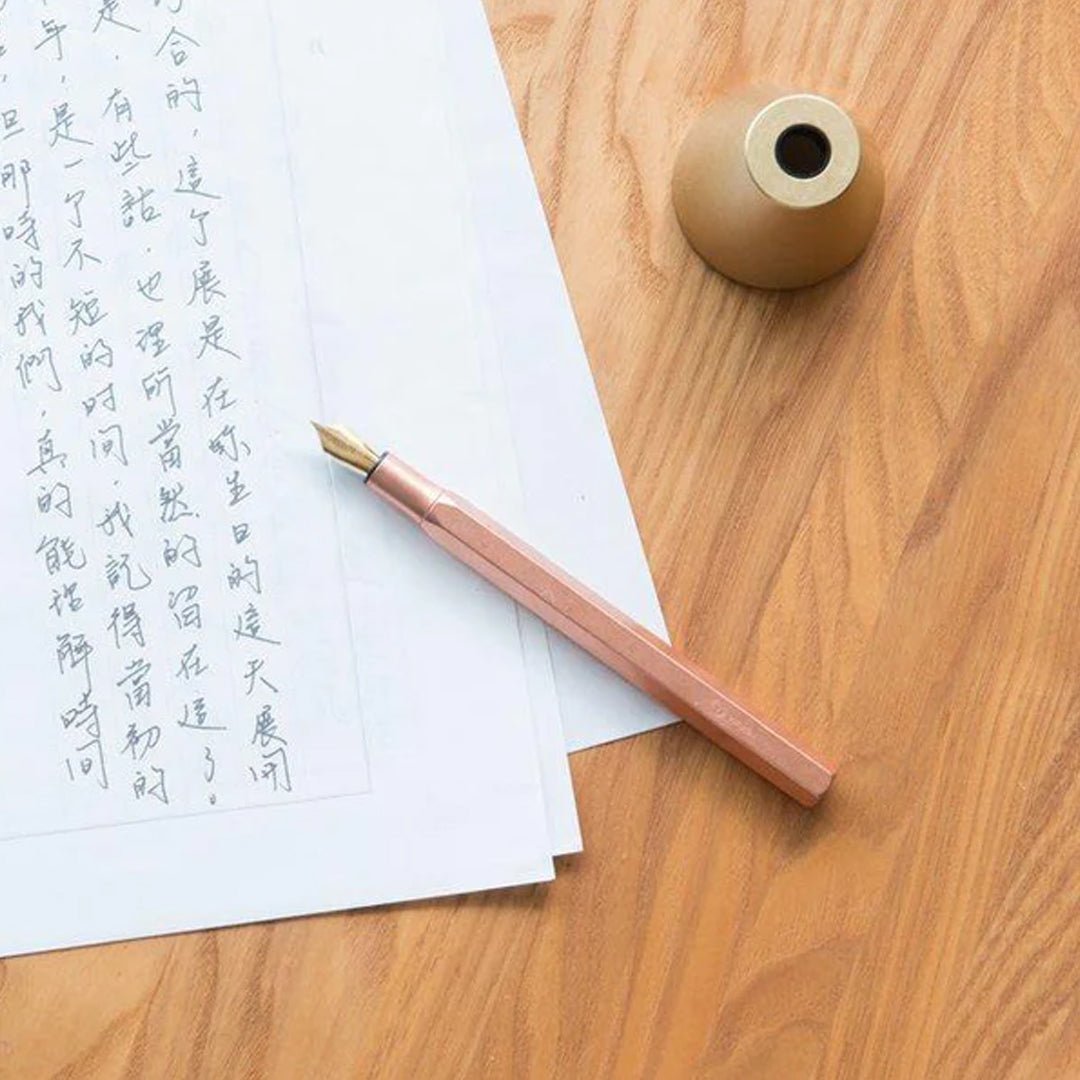 合的，這个展是在你生日的這天展開
是，有些話，也理所當然的留在這了。
年，是一个不短的时间，我記得當初的
但那時的我們，真的能理解時间